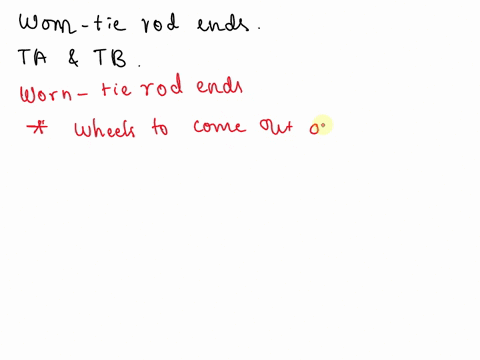 Worn-tie rod ends.
TA & TB.
Worn-tie rod ends
* wheels to come out